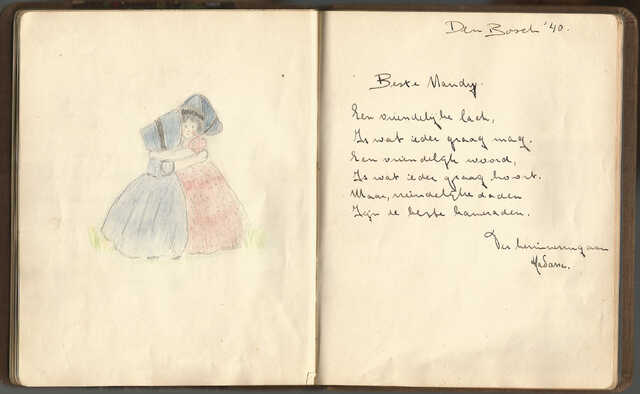 Den Bosch '40.
Beste Mandy.
Een vriendelijke lach,
Is wat ieder graag mag.
Een vriendelijk woord,
Is wat ieder graag hoort.
Maar, vriendelijke daden
Zijn de beste kameraden.
Ter herinnering aan